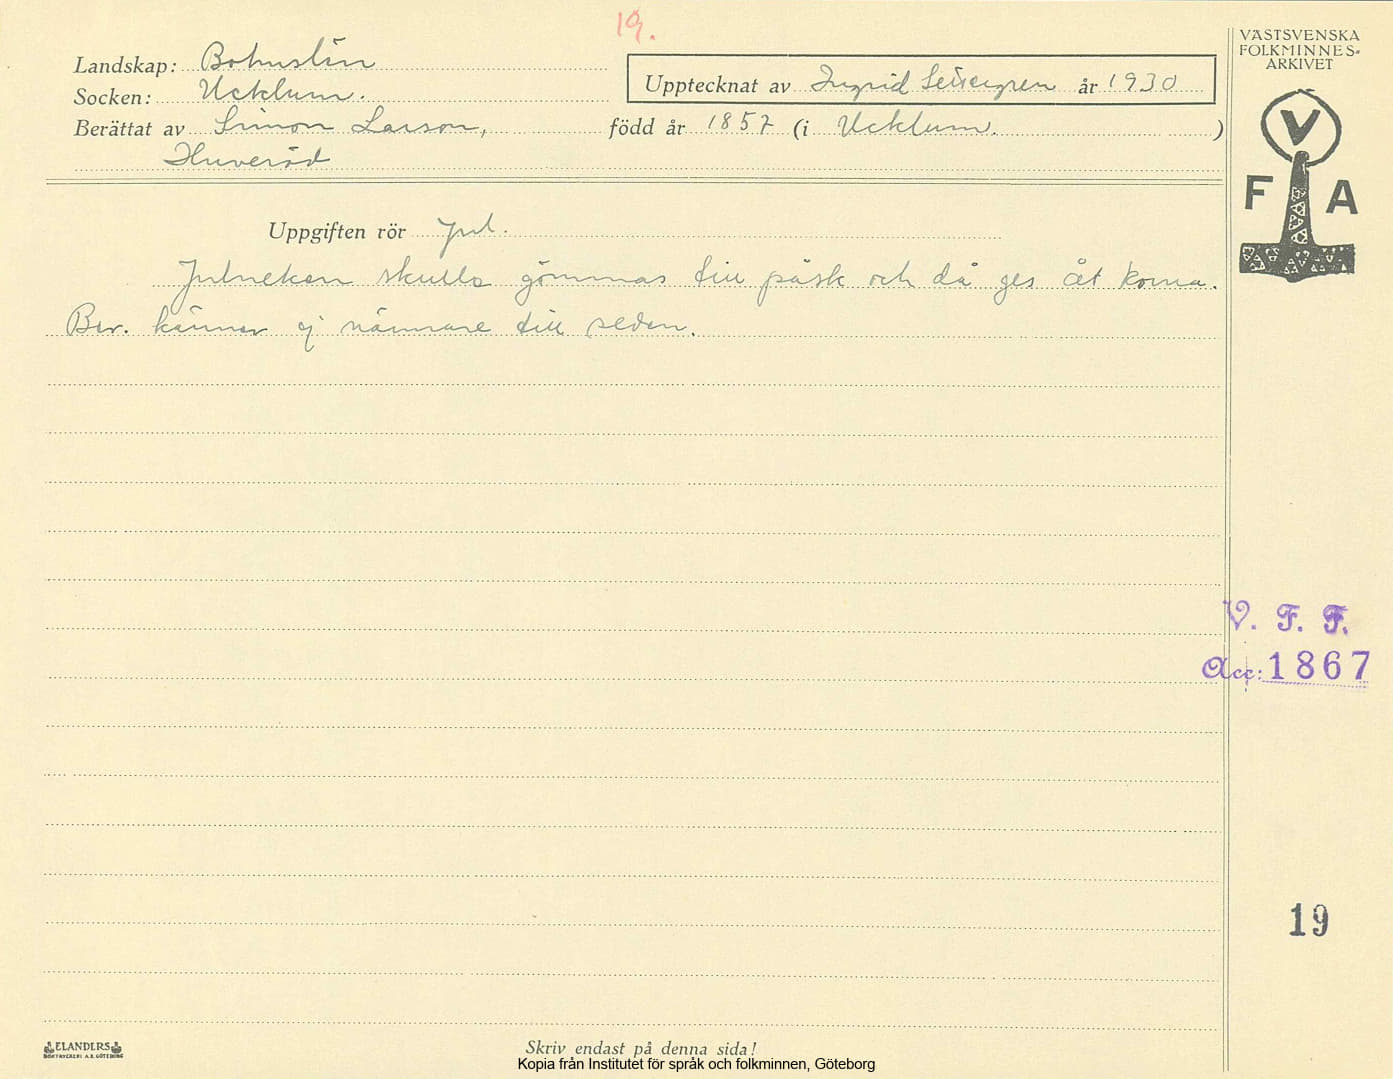 19.
VÄSTSVENSKA
FOLKMINNES-
ARKIVET
Landskap: Bohuslän
Upptecknat av Ingrid år 1930
Socken: Ucklum.
Berättat av Simon Larson, född år 1857 (i Ucklum. )
Huveröd
V
F A
Uppgiften rör Jul.
Julneken skulle gömmas till påsk och då ges åt korna.
Ber. känner ej närmare till seden.
V. F. F.
Acc: 1867
19
ELANDERS
BOKTRYCKERI A.B. GÖTEBORG
Skriv endast på denna sida!
Kopia från Institutet för språk och folkminnen, Göteborg